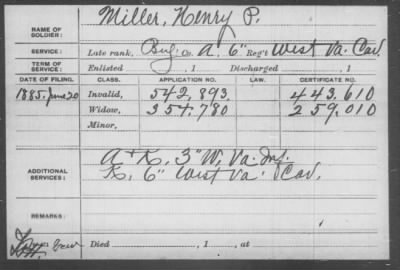 NAME OF SOLDIER: Miller, Henry P.
SERVICE: Late rank, Bug. Co. A. 6" Reg't West Va. Cav.
TERM OF SERVICE: Enlisted , 1 Discharged , 1
DATE OF FILING. CLASS. APPLICATION NO. LAW. CERTIFICATE NO.
1885. June 20 Invalid, 542.893. 443.610
Widow, 354.780 259.010
Minor,
ADDITIONAL SERVICES: A & K, 3" W. Va. Inf.
K. 6" West Va. Cav.
REMARKS:
Died , 1 , at